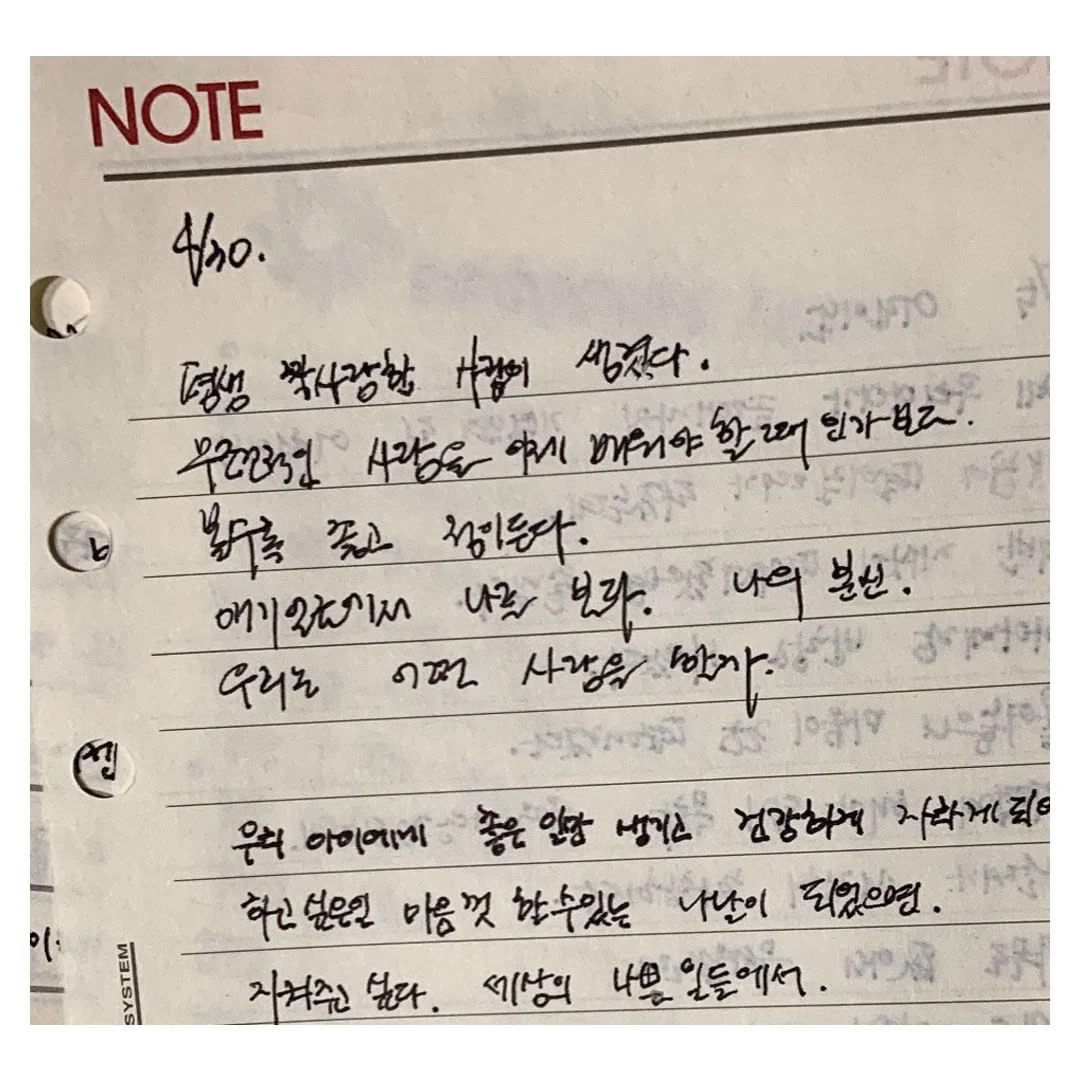 NOTE
4/30.
평생 짝사랑할 사람이 생겼다.
무조건적인 사랑을 이제 배워야 할 때 인가보다.
볼수록 좋고 정이든다.
애기인데 나를 보라. 나의 분신.
우리는 어떤 사랑을 할까.
우리 아이에게 좋은 일만 생기고 건강하게 자라게 되어
하고 싶은일 마음껏 할 수 있는 나날이 되었으면.
지켜주고 싶다. 세상의 나쁜 일들에서.
SYSTEM